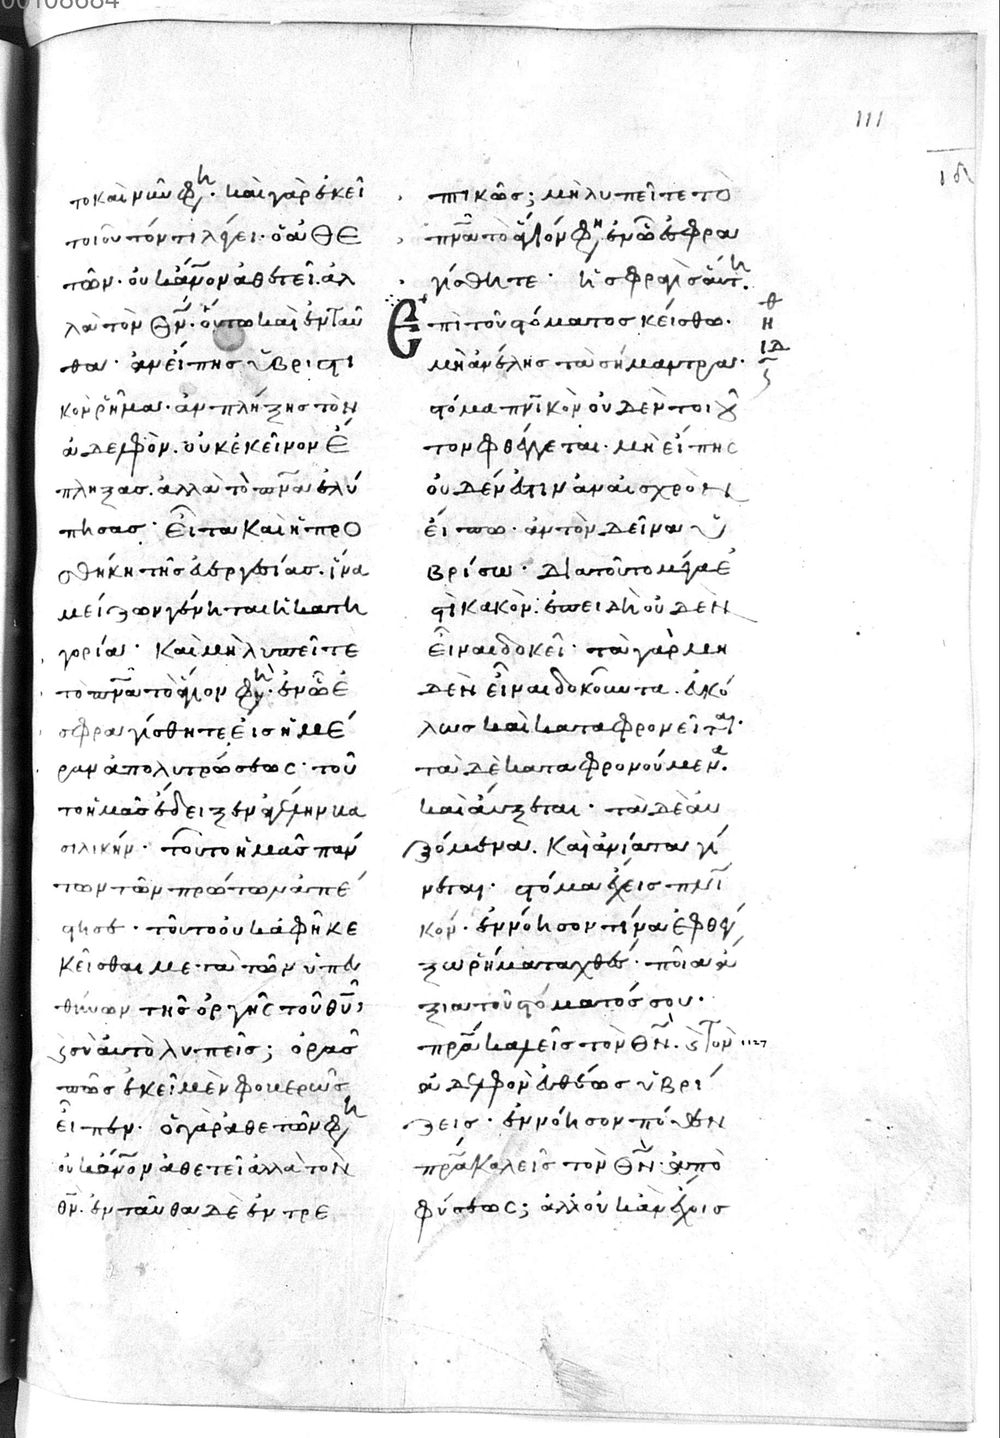 00108684
111
το καὶ νῦν φη. καὶ γὰρ ἐκεῖ
τοιοῦτόν τι λέγει. ὁ ἀθε
τῶν. οὐκ ἄνον ἀθετεῖ. ἀλ
λὰ τὸν θν. οὕτω καὶ ἐνταῦ
θα. ἂν εἴπης ὑβριστι
κὸν ῥῆμα. ἂν πλήξης τὸν
ἀδελφόν. οὐκ ἐκεῖνον ἔ
πληξας. ἀλλὰ τὸ πνα ἐλύ
πησας. εἶτα καὶ ἡ προ
σθήκη τῆς ἐυεργεσίας. ἵνα
μείζων γένηται ἡ κατη
γορία. Καὶ μὴ λυπεῖτε
τὸ πνα τὸ ἅγιον φη. ἐν ὧ ἐ
σφραγίσθητε εἰς ἡμέ
ραν ἀπολυτρώσεως. τοῦ
το ἡμᾶς ἔδειξεν ἀγέλην βα
σιλικήν. τοῦτο ἡμᾶς πάν
των τῶν πρώτων ἀπέ
στησε. τοῦτο οὐκ ἀφῆκε
κεῖσθαι μετὰ τῶν ὑπευ
θύνων τῆς ὀργῆς τοῦ θυ,
σὺ αὐτὸ λυπεῖς; ὁρᾶς
πῶς ἐκεῖ μὲν φοβερῶς
εἶπεν. ὁ γὰρ ἀθετῶν φη
οὐκ ἄνον ἀθετεῖ ἀλλὰ τὸν
θν. ἐνταῦθα δὲ ἐντρε
πτικῶς; μὴ λυπεῖτε τὸ
πνα τὸ ἅγιον φη, ἐν ὧ ἐσφρα
γίσθητε. ἡ σφραγὶς αὕτη.
Ἐπὶ τοῦ στόματος κείσθω.
μὴ ἀνέλης τὰ σήμαντρα.
στόμα πνικὸν οὐδὲν τοιοῦ
τον φθέγγεται. μὴ εἴπης
οὐδέν ἐστιν ἂν αἰσχρὸν
εἴπω. ἂν τὸν δεῖνα ὑ
βρίσω. Διατοῦτο μέγα ἐ
στὶ κακόν. ἐπειδὴ οὐδὲν
εἶναι δοκεῖ. τὰ γὰρ μη
δὲν εἶναι δοκοῦντα. εὐκό
λως καὶ καταφρονεῖται.
τὰ δὲ καταφρονούμενα.
καὶ αὔξεται. τὰ δὲ αὐ
ξόμενα. Καὶ ἀνίατα γί
νεται. στόμα ἔχεις πνι
κόν. ἐννόησον τίνα ἐφθέγ
ξω ῥήματα τεχθείς. ποῖα ἄ
ξια τοῦ στόματός σου.
πρα καλεῖς τὸν θν. ἐ τὸν
ἀδελφὸν εὐθέως ὑβρί
ζεις. ἐννόησον πόθεν
πρα καλεῖς τὸν θν. ἀπὸ
φύσεως; ἀλλ' οὐκ ἂν ἔχοις